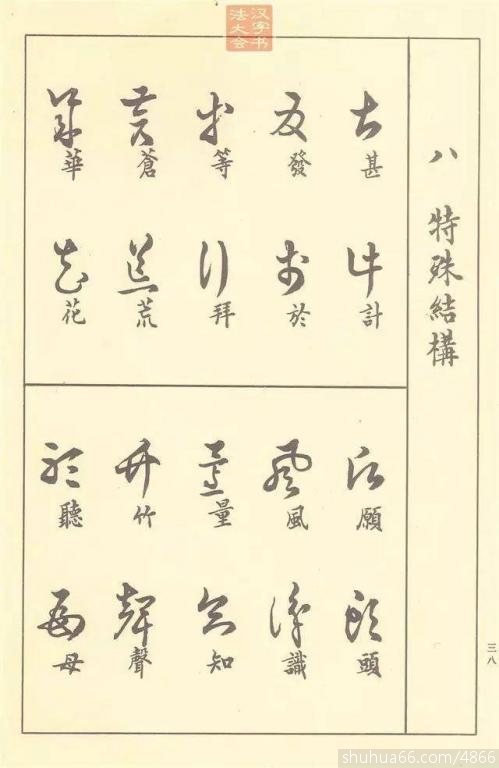 汉字书法大会
八 特殊結構
甚 發 等 蒼 華
計 於 拜 荒 花
願 風 量 竹 聽
頭 識 知 聲 母
三八
shuhua66.com/4866